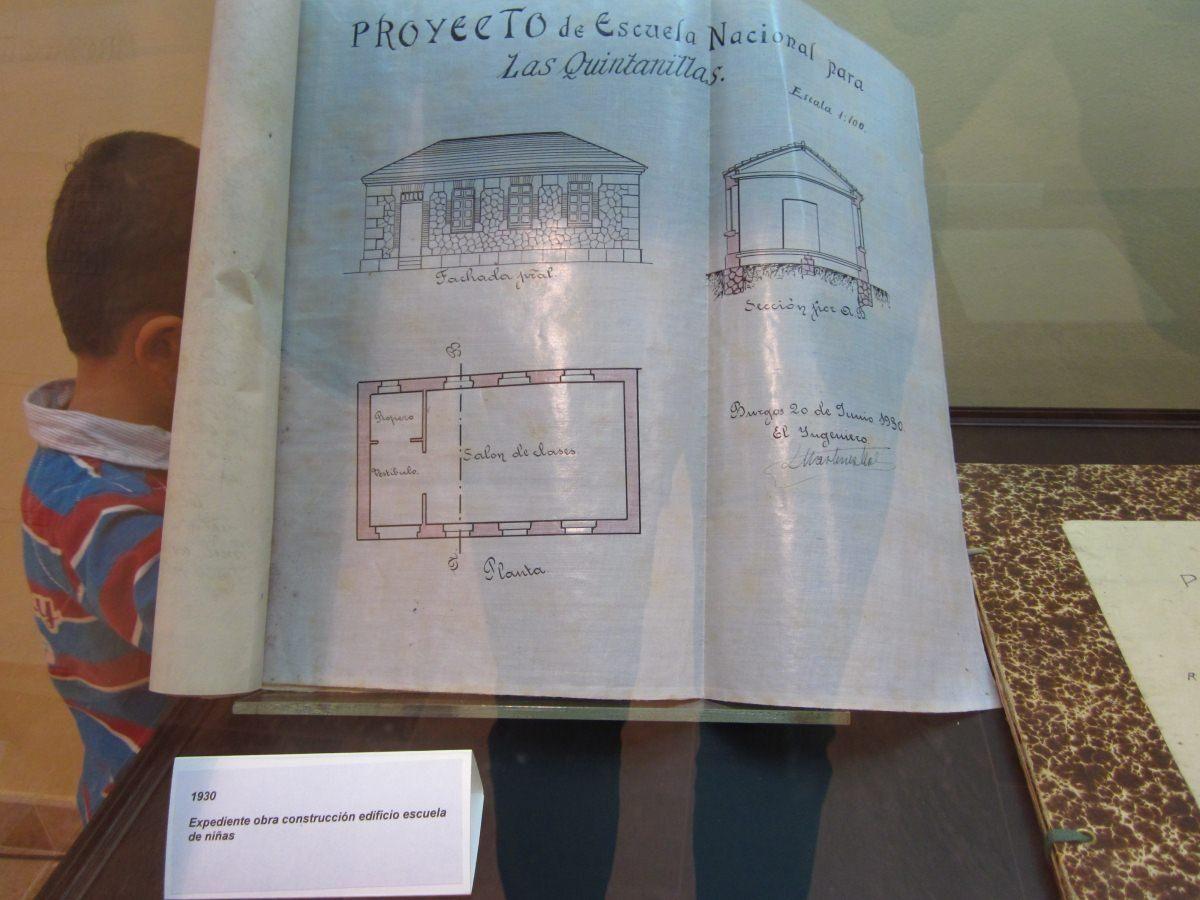 PROYECTO de Escuela Nacional para
Las Quintanillas.
Escala 1:100.
Fachada pral.
Sección por A.B.
Ropero
Vestíbulo
Salon de clases
B
Planta
Burgos 20 de Junio 1930
El Ingeniero
1930
Expediente obra construcción edificio escuela
de niñas